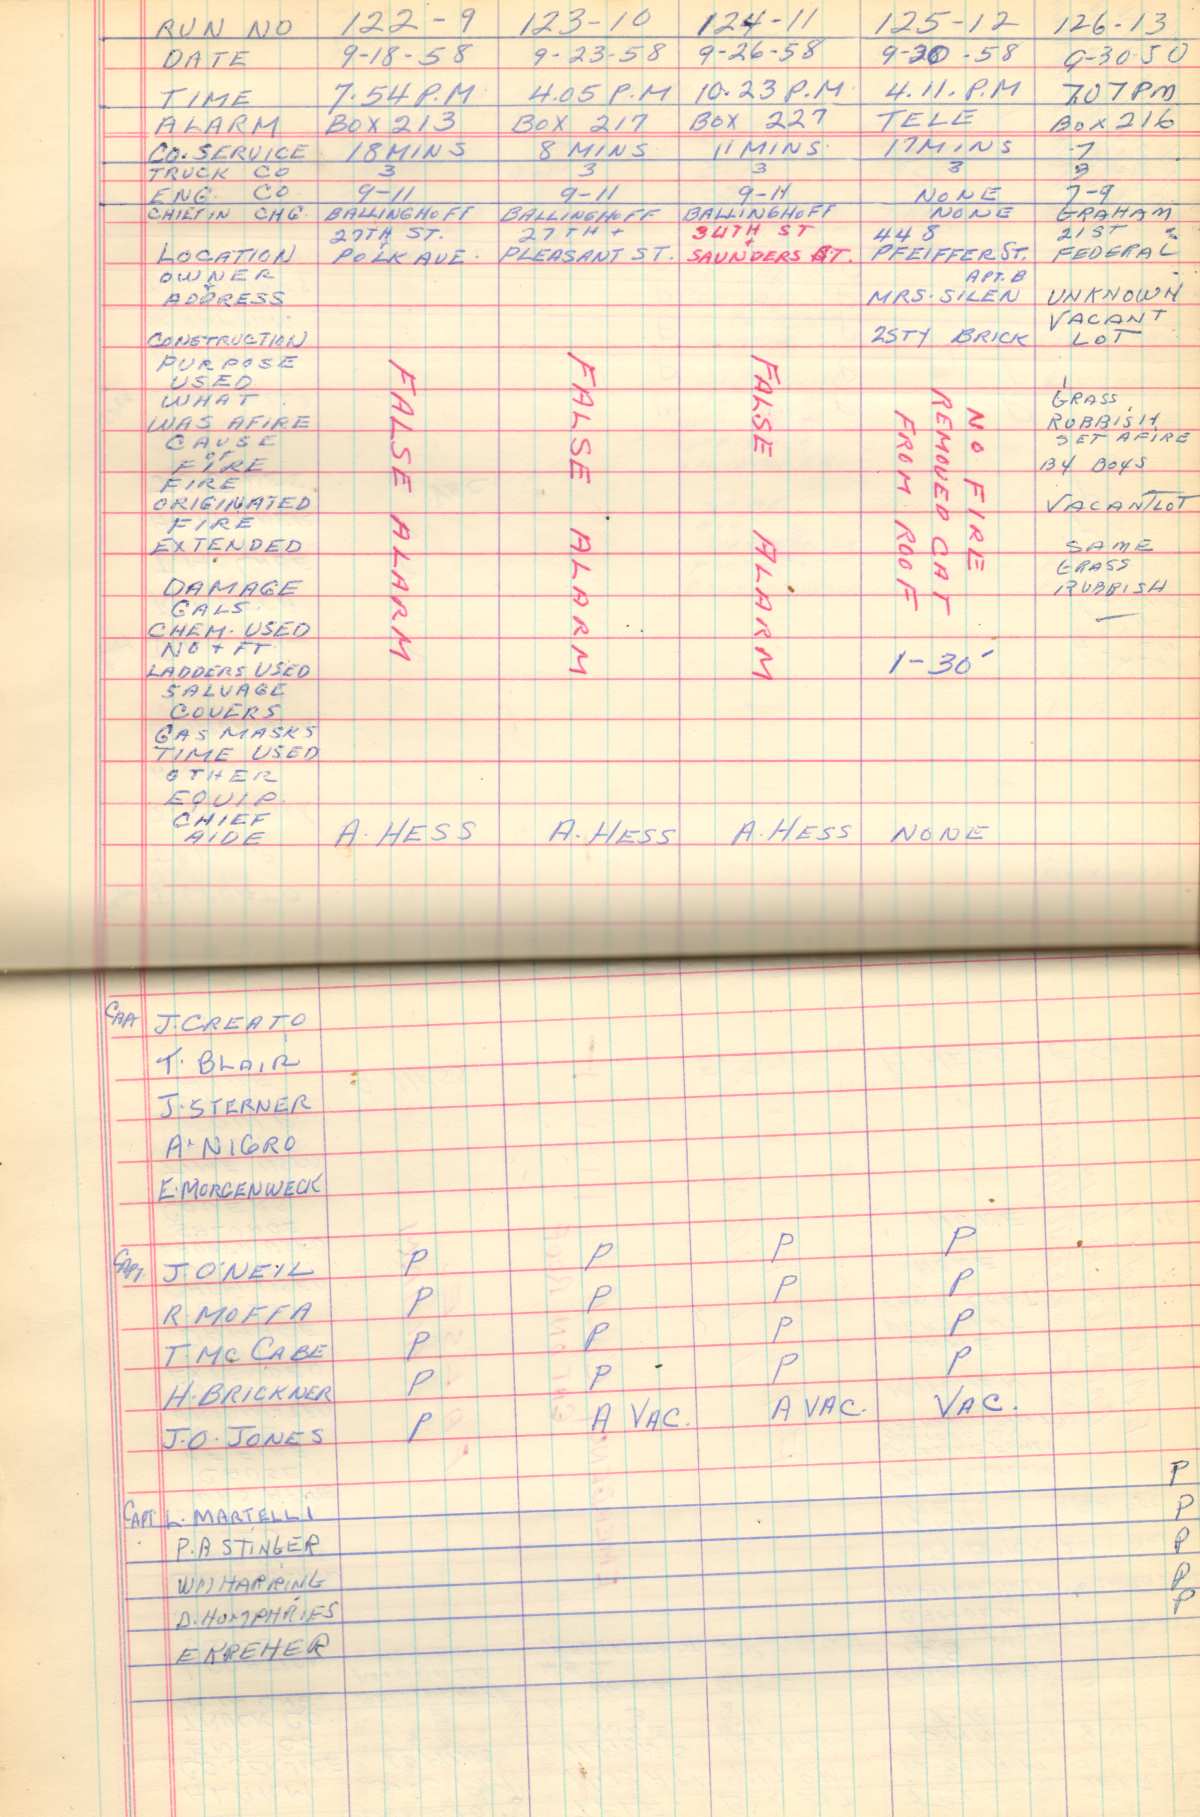 RUN NO 122-9 123-10 124-11 125-12 126-13
DATE 9-18-58 9-23-58 9-26-58 9-30-58
TIME 7.54 P.M 4.05 P.M 10.23 P.M. 4.11. P.M 7.07 PM
ALARM BOX 213 BOX 217 BOX 227 TELE BOX 216
CO. SERVICE 18 MINS 8 MINS 11 MINS. 17 MINS 7
TRUCK CO 3 3 3 3 3
ENG. CO 9-11 9-11 9-11 NONE 7-9
CHIEF IN CHG. BALLINGHOFF BALLINGHOFF BALLINGHOFF NONE GRAHAM
27TH ST. 27TH + 34TH ST 448 21ST &
+
LOCATION POLK AVE. PLEASANT ST. SAUNDERS ST. PFEIFFER ST. FEDERAL
OWNER APT. B
+
ADDRESS MRS. SILEN UNKNOWN
VACANT
CONSTRUCTION 2STY BRICK LOT
PURPOSE
USED
WHAT GRASS,
WAS AFIRE RUBBISH
CAUSE SET AFIRE
OF
FIRE BY BOYS
FIRE
ORIGINATED VACANT LOT
FIRE
EXTENDED SAME
GRASS
DAMAGE RUBBISH
FALSE ALARM
FALSE ALARM
FALSE ALARM
NO FIRE
REMOVED CAT
FROM ROOF
GALS.
CHEM. USED —
NO + FT
LADDERS USED 1-30'
SALVAGE
COVERS
GAS MASKS
TIME USED
OTHER
EQUIP.
CHIEF
AIDE A. HESS A. HESS A. HESS NONE
J. CREATO
T. BLAIR
J. STERNER
A. NIGRO
E. MORGENWECK
CAPT. J. O'NEIL P P P P
R. MOFFA P P P P
T. MC CABE P P P P
H. BRICKNER P P P P
J. O. JONES P A VAC. A VAC. VAC.
CAPT L. MARTELLI P
P. A STINGER P
WM HARRING P
D. HUMPHRIES P
E KREHER P